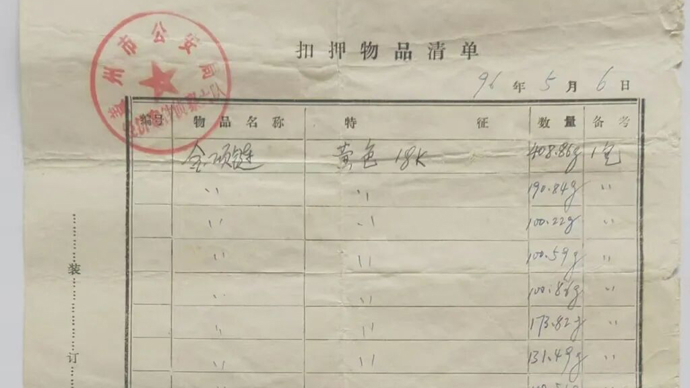 扣押物品清单
96年5月6日
编号 物品名称 特征 数量 备考
金项链 黄色 18K 408.86g 1包
〃 〃 190.84g 〃
〃 〃 100.22g 〃
〃 〃 100.59g 〃
〃 〃 100.86g 〃
〃 〃 173.82g 〃
〃 〃 131.49g 〃
装
订
州市公安局